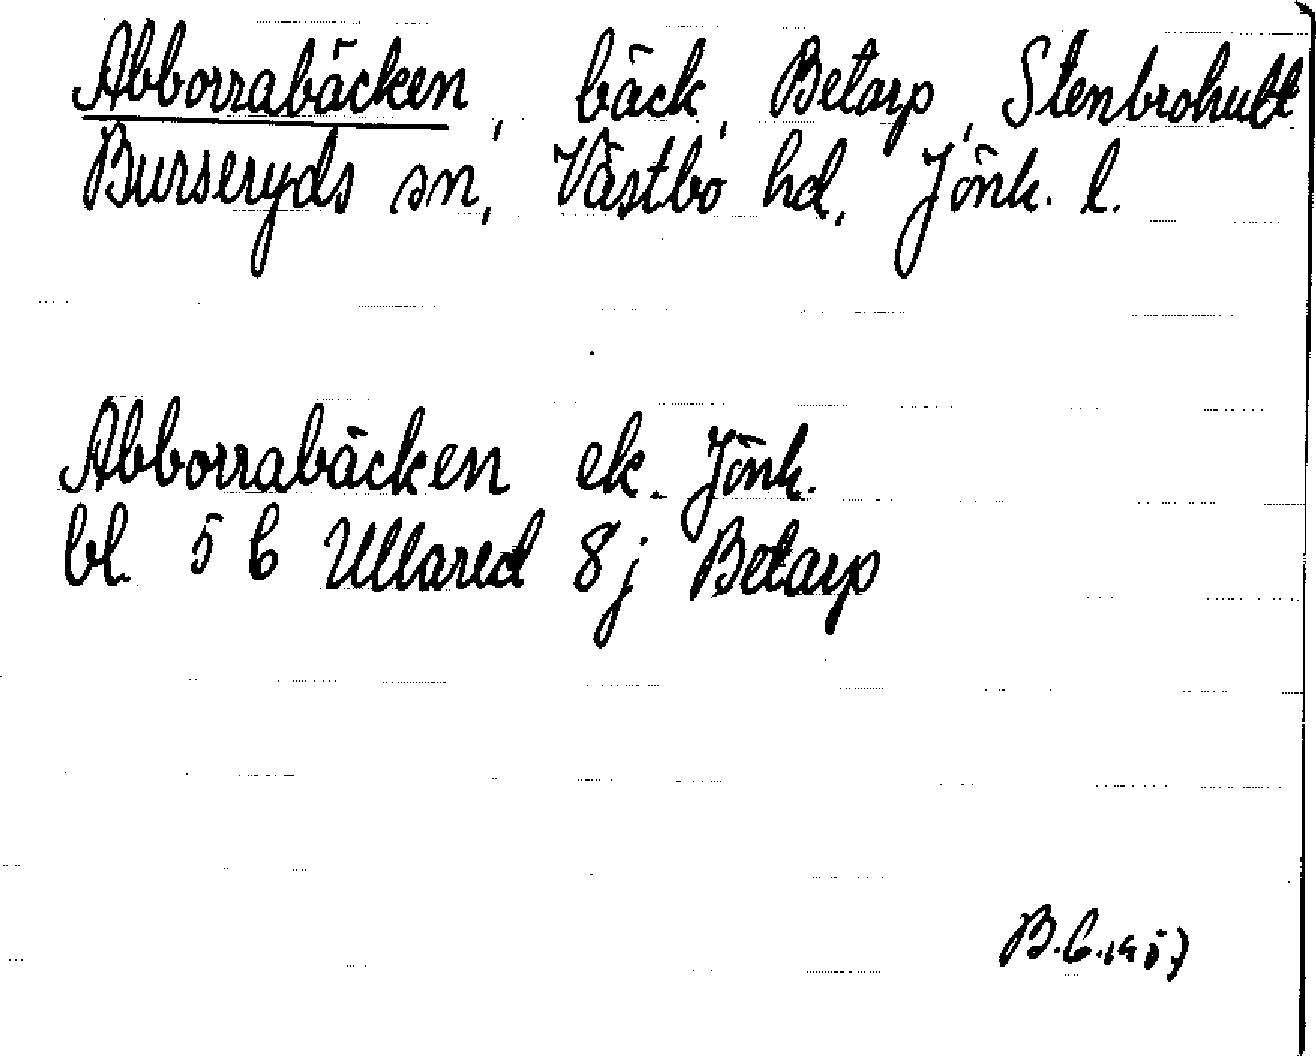 Abborrabäcken, bäck, Betarp, Stenbrohult
Burseryds sn, Västbo hd, Jönk. l.
Abborrabäcken ek. Jönk.
bl. 5 C Ullared 8 j Betarp
B.C. 1957